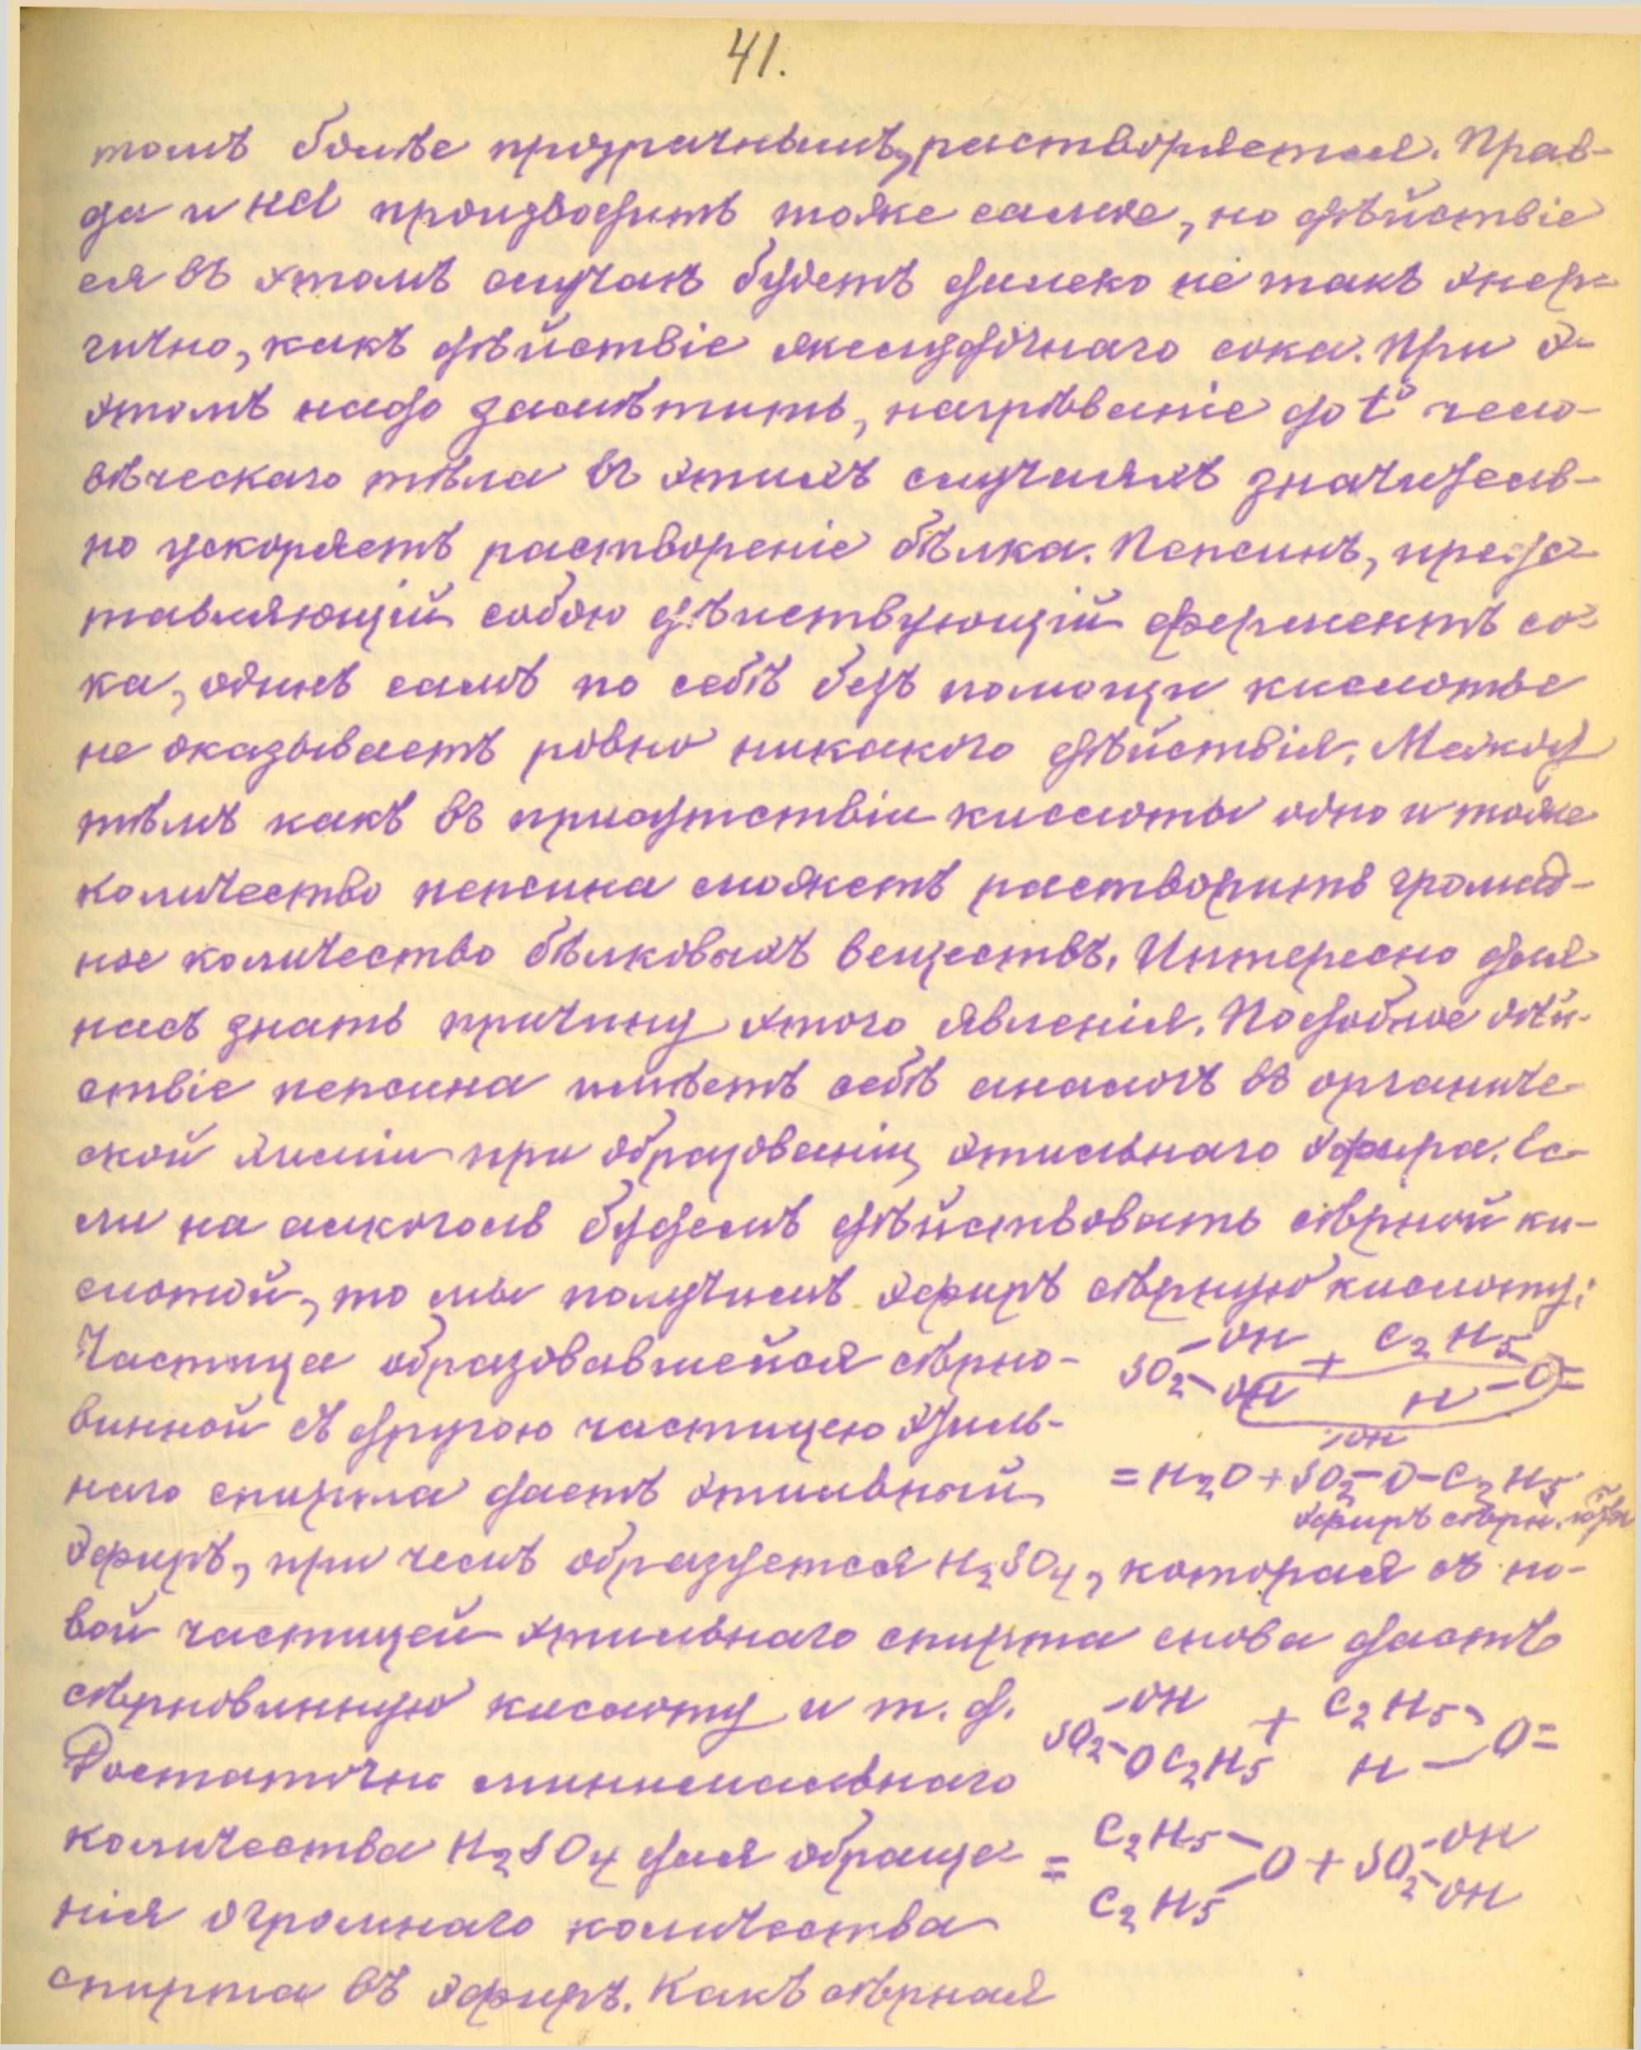 41.
томъ болѣе прозрачнымъ, растворяется. Прав-
да и HCl производитъ тоже самое, но дѣйствіе
ея въ этомъ случаѣ будетъ далеко не такъ энер-
гично, какъ дѣйствіе желудочнаго сока. При э-
этомъ надо замѣтить, нагрѣваніе до t° чело-
вѣческаго тѣла въ этихъ случаяхъ значитель-
но ускоряетъ раствореніе бѣлка. Пепсинъ, предс-
тавляющій собою дѣйствующій ферментъ со-
ка, одинъ самъ по себѣ безъ помощи кислоты
не оказываетъ ровно никакого дѣйствія. Между
тѣмъ какъ въ присутствіи кислоты одно и тоже
количество пепсина можетъ растворить громад-
ное количество бѣлковыхъ веществъ. Интересно для
насъ знать причину этого явленія. Подобное дѣй-
ствіе пепсина имѣетъ себѣ аналогъ въ органиче-
ской химіи при образованіи этильнаго эфира. Ес-
ли на алкоголь будемъ дѣйствовать сѣрной ки-
слотой, то мы получимъ эфиръ сѣрную кислоту;
Частица образовавшейся сѣрно-
винной съ другою частицею этиль-
наго спирта дастъ этильный
эфиръ, при чемъ образуется H₂SO₄, которая съ но-
вой частицей этильнаго спирта снова дастъ
сѣрновинную кислоту и т. д.
Достаточно минимальнаго
количества H₂SO₄ для обраще-
нія огромнаго количества
спирта въ эфиръ. Какъ сѣрная
-OH + C₂H₅
SO₂-OH H-O=
-OH
=H₂O+SO₂-O-C₂H₅
эфиръ сѣрн.
-OH + C₂H₅-
SO₂-OC₂H₅ H-O=
= C₂H₅-O + SO₂-OH
C₂H₅ -OH